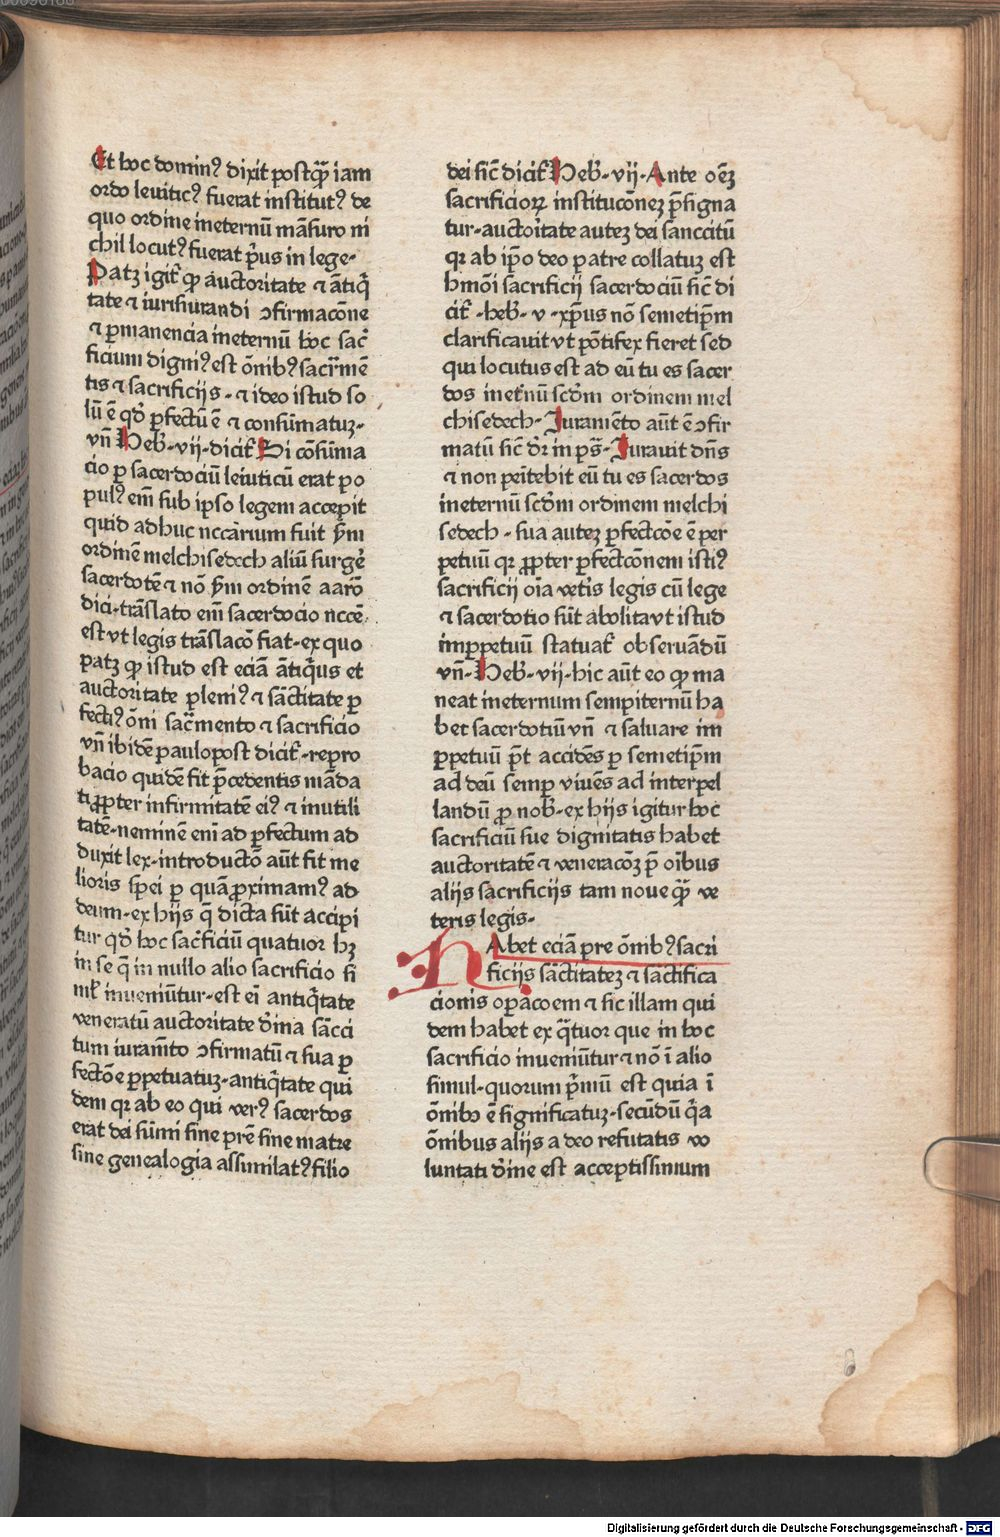 Et hoc dominꝰ dixit postq̄ꝫ iam
ordo leuiticꝰ fuerat institutꝰ de
quo ordine ineternū māsuro ni
chil locutꝰ fuerat p̄us in lege·
Patꝫ igit̄ ꝙ auctoritate ⁊ ātiq̄
tate ⁊ iurisiurandi ↄfirmacōne
⁊ ꝑmanencia ineternū hoc sac̄
ficium digniꝰ est ōnibꝰ sacr̄mē
tis ⁊ sacrificijs·⁊ ideo istud so
lū ē qd̄ ꝑfectū ē ⁊ consūmatuꝫ·
vn̄ Heb̄·vij·dicit̄ Si cōsūma
cio ꝑ sacerdociū leiuticū erat po
pulꝰ em̄ sub ipso legem accepit
quid adhuc nccārium fuit s̄m
ordinē melchisedech aliū surge᷑
sacerdotē ⁊ nō s̄m ordinē aarō
dici·trāslato em̄ sacerdocio nccē.
est vt legis trāslacō fiat·ex quo
patꝫ ꝙ istud est eciā ātiq̄us et
auctoritate pleniꝰ ⁊ sāctitate ꝑ
fectiꝰ ōni sac̄mento ⁊ sacrificio
vn̄ ibidē paulopost dicit̄·repro
bacio quidē fit p̄cedentis māda
ti ꝓpter infirmitatē eiꝰ ⁊ inutili
tatē·neminē eni ad ꝑfectum ad
duxit lex·introductō aūt fit me
lioris spei ꝑ quā ꝓximamꝰ ad
deum·ex hijs q̄ dicta sūt accipi
tur qd̄ hoc sac̄ficiū quatuor hꝫ
in se q̄ in nullo alio sacrificio si
ml̄ inueniūtur·est ei antiq̄tate
veneratū auctoritate d̄ina sācci
tum iuram̄to ↄfirmatū ⁊ sua ꝑ
fectōe ꝑpetuatuꝫ·antiq̄tate qui
dem qꝛ ab eo qui verꝰ sacerdos
erat dei sūmi sine pr̄e sine matre
sine genealogia assimilatꝰ filio
dei sic̄ dicit̄ Heb̄·vij·Ante oēꝫ
sacrificioꝝ institucōneꝫ p̄signa
tur·auctoritate auteꝫ dei sanccitū
qꝛ ab ip̄o deo patre collatuꝫ est
hmōi sacrificij sacerdociū sic̄ di
cit̄·heb̄·v·xp̄us nō semetip̄m
clarificauit vt pōtifex fieret sed
qui locutus est ad eū tu es sacer
dos inet̄nū scd̄m ordinem mel
chisedech·Iuramēto aūt ē ↄfir
matū sic̄ dr̄ in ps̄·Iurauit dn̄s
⁊ non penītebit eū tu es sacerdos
ineternū scd̄m ordinem melchi
sedech·sua auteꝫ ꝑfectcōe ē per
petuū qꝛ ꝓpter ꝑfectcōnem istiꝰ
sacrificij oīa vetīs legis cū lege
⁊ sacerdotio sūt abolita vt istud
imꝑpetuū statuat̄ obseruādū
vn̄·Heb̄·vij·hic aūt eo ꝙ ma
neat ineternum sempiternū ha
bet sacerdotiū vn̄ ⁊ saluare im
ꝑpetuū p̄t accidēs ꝑ semetip̄m
ad deū semꝑ viuēs ad interpel
landū ꝓ nob̄·ex hijs igitur hoc
sacrificiū sue dignitatis habet
auctoritatē ⁊ veneracōꝫ p̄ oībus
alijs sacrificijs tam noue q̄ꝫ ve
teris legis·
HAbet eciā pre ōnibꝰ sacri
ficijs sāctitateꝫ ⁊ sāctifica
cionis oꝑacoem ⁊ sic illam qui
dem habet ex q̄tuor que in hoc
sacrificio inueniūtur ⁊ nō ī alio
simul·quorum p̄mū est quia ī
ōnibꝰ ē significatuꝫ·secūdū q̄a
ōnibus alijs a deo refutatis vo
luntati d̄ine est acceptissimum
Digitalisierung gefördert durch die Deutsche Forschungsgemeinschaft - DFG